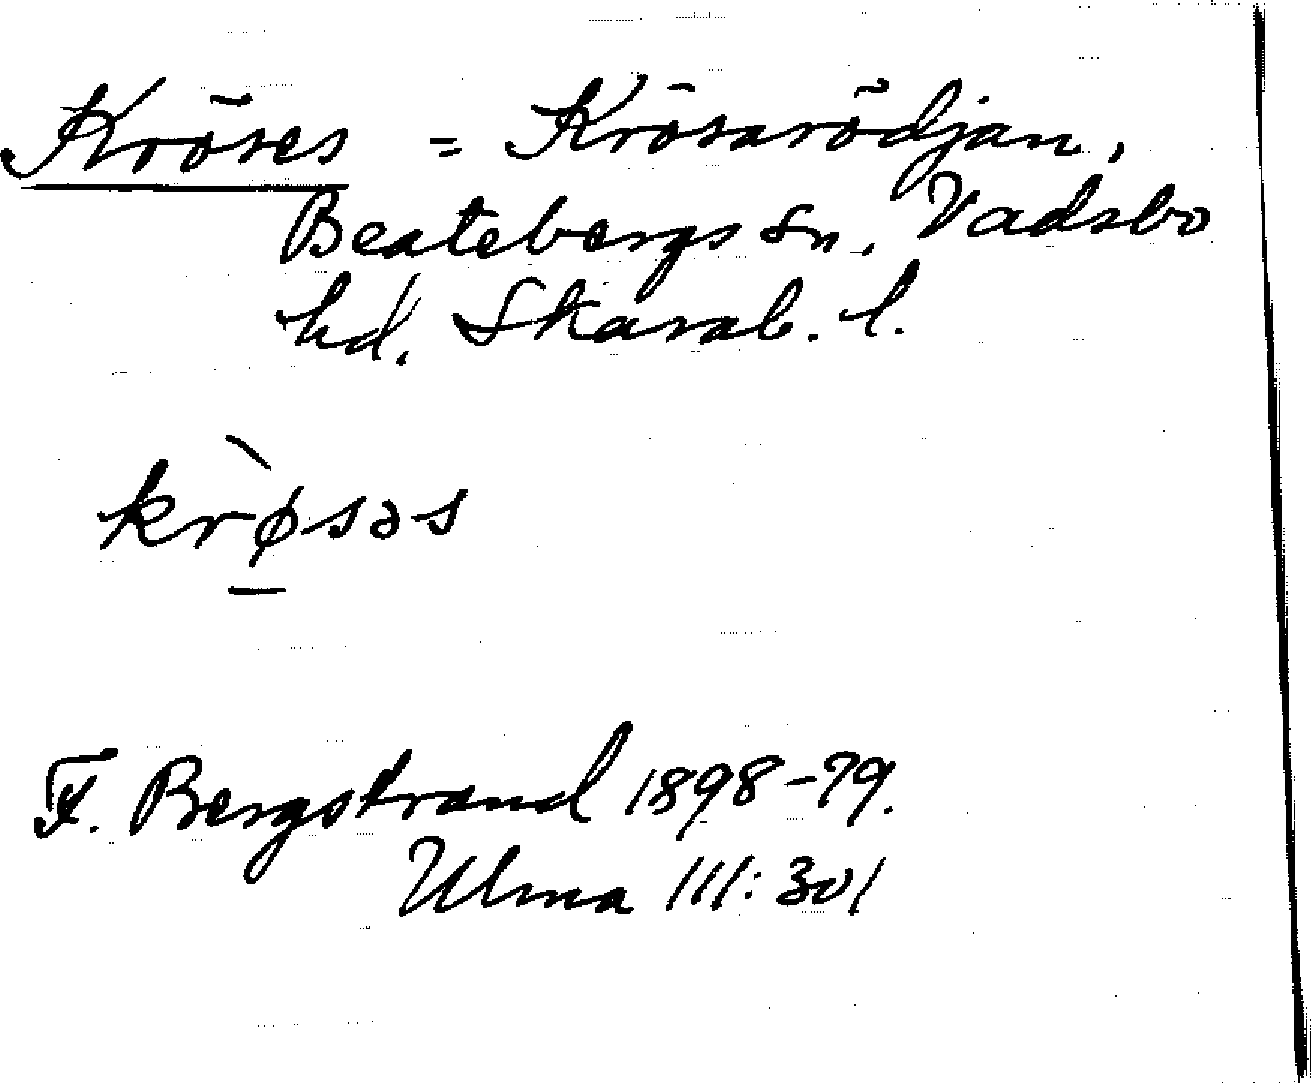 Kröses = Krösarödjan,
Beatebergs sn, Vadsbo
hd. Skarab. l.
krø̀səs
F. Bergstrand 1898-79.
Ulma 111:301